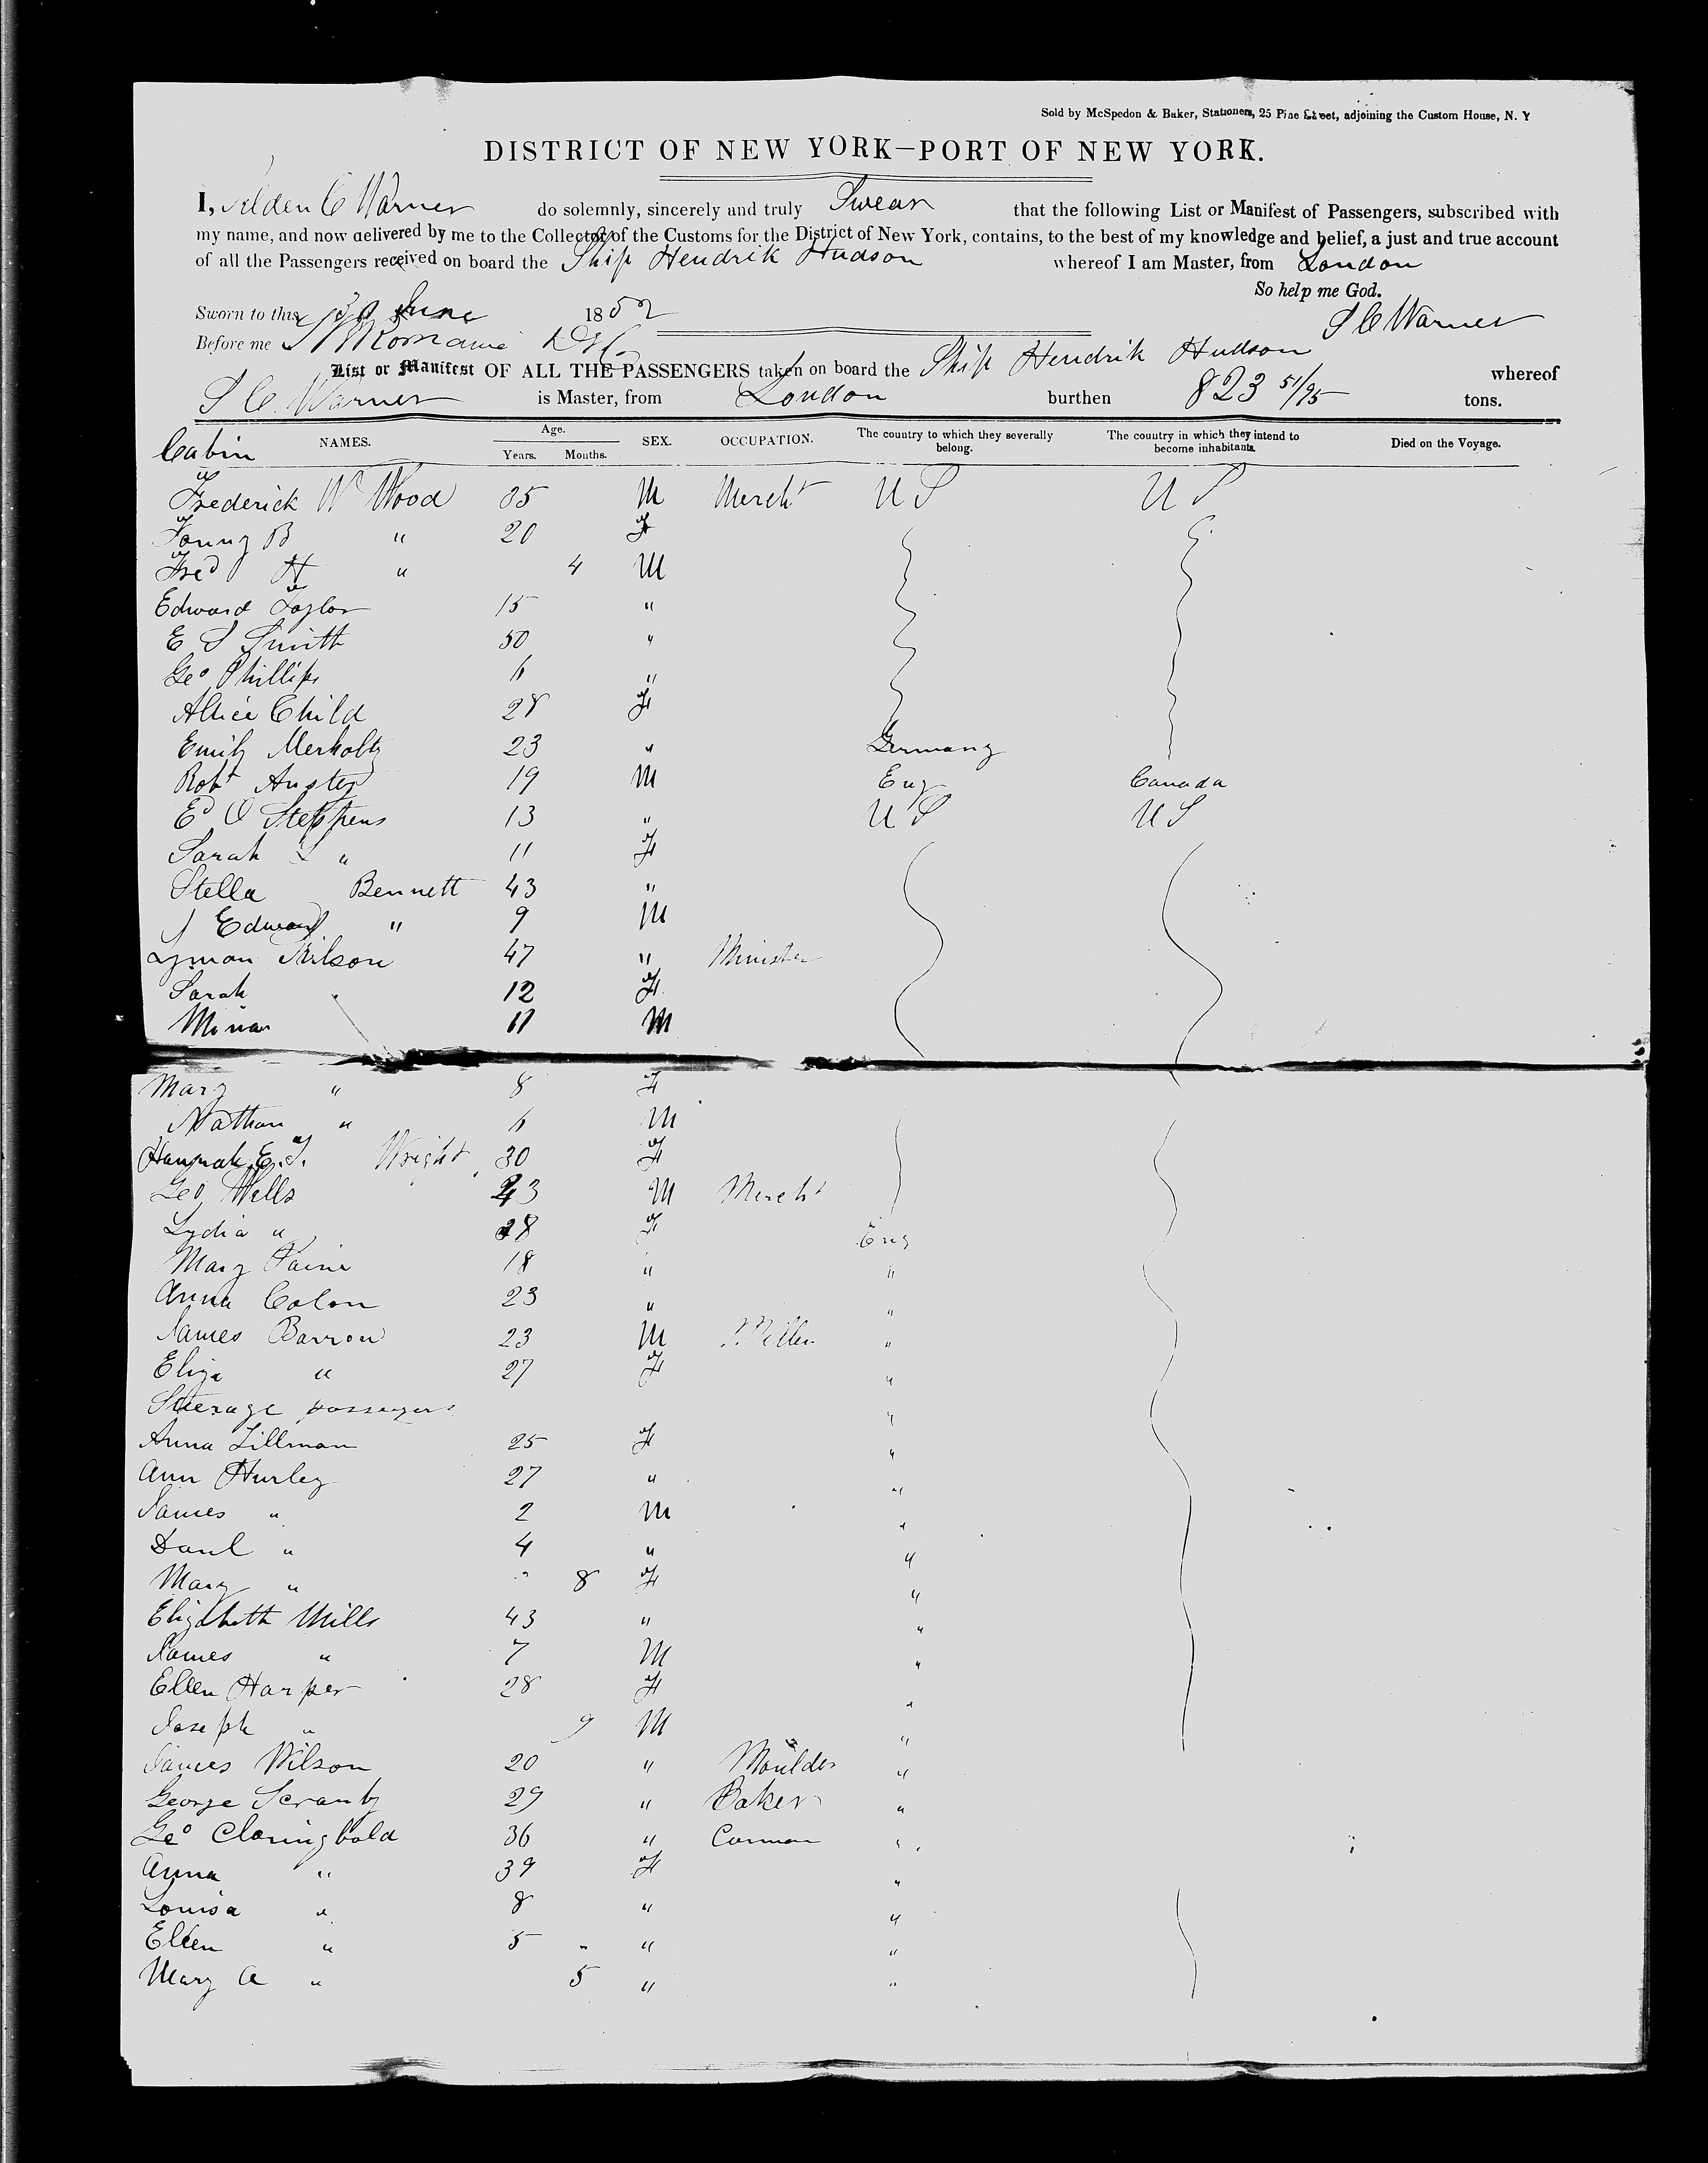 Sold by McSpedon & Baker, Stationers, 25 Pine Street, adjoining the Custom House, N. Y
DISTRICT OF NEW YORK—PORT OF NEW YORK.
I, Selden C Warner do solemnly, sincerely and truly Swear that the following List or Manifest of Passengers, subscribed with
my name, and now delivered by me to the Collector of the Customs for the District of New York, contains, to the best of my knowledge and belief, a just and true account
of all the Passengers received on board the Ship Hendrik Hudson whereof I am Master, from London
So help me God.
Sworn to this 30 June 1852
S C Warner
Before me
List or Manifest OF ALL THE PASSENGERS taken on board the Ship Hendrik Hudson whereof
S C Warner is Master, from London burthen 823 51/95 tons.
Cabin NAMES. Age. Years. Months. SEX. OCCUPATION. The country to which they severally belong. The country in which they intend to become inhabitants. Died on the Voyage.
Frederick W Wood 35 M Merch't U S U S
Fanny B " 20 F
Fred H " 4 M
Edward Taylor 15 "
E S Smith 50 "
Geo Phillips 6 "
Allice Child 28 F
Emily Merholtz 23 " Germany
Robt Austen 19 M Eng Canada
Ed O Stephens 13 " U S U S
Sarah L " 11 F
Stella Bennett 43 "
J Edward " 9 M
Lyman Wilson 47 " Minister
Sarah 12 F
Minar 11 M
Mary " 8 F
Nathan " 6 M
Hannah E. T. Wright 30 F
Geo Wells 43 M Merch't
Lydia " 28 F Eng
Mary Paine 18 " "
Anna Colon 23 " "
James Barron 23 M Miller "
Eliza " 27 F "
Steerage passengers "
Anna Tillman 25 F "
Ann Hurley 27 " "
James " 2 M "
Danl " 4 " "
Mary " " 8 F "
Elizabeth Mills 43 " "
James " 7 M "
Ellen Harper 28 F "
Joseph " 9 M "
James Wilson 20 " Moulder "
George Scranby 29 " Baker "
Geo Claringbold 36 " Carman "
Anna " 39 F "
Louisa " 8 " "
Ellen " 5 " " "
Mary A " 5 " "